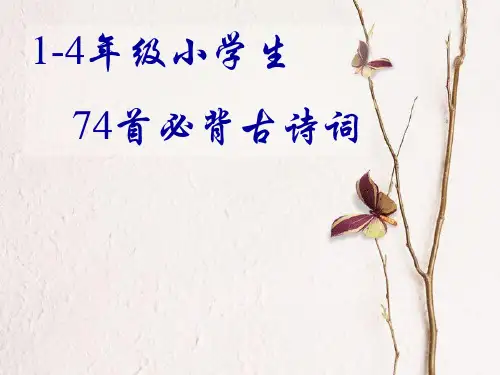 1-4年级小学生
74首必背古诗词